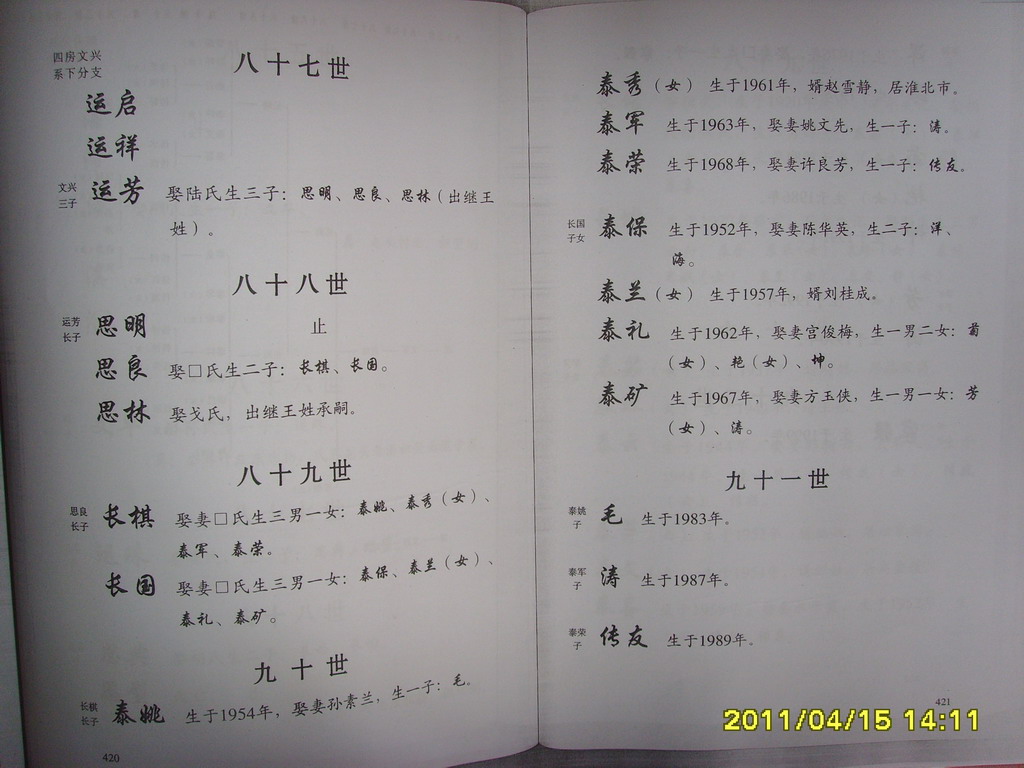 四房文兴
系下分支
八十七世
运启
运祥
文兴
三子
运芳 娶陆氏生三子：思明、思良、思林（出继王
姓）。
八十八世
运芳
长子
思明 止
思良 娶□氏生二子：长棋、长国。
思林 娶戈氏，出继王姓承嗣。
八十九世
思良
长子
长棋 娶妻□氏生三男一女：泰姚、泰秀（女）、
泰军、泰荣。
长国 娶妻□氏生三男一女：泰保、泰兰（女）、
泰礼、泰矿。
九十世
长棋
长子
泰姚 生于1954年，娶妻孙素兰，生一子：毛。
420
泰秀（女） 生于1961年，婿赵雪静，居淮北市。
泰军 生于1963年，娶妻姚文先，生一子：涛。
泰荣 生于1968年，娶妻许良芳，生一子：传友。
长国
子女
泰保 生于1952年，娶妻陈华英，生二子：洋、
海。
泰兰（女） 生于1957年，婿刘桂成。
泰礼 生于1962年，娶妻宫俊梅，生一男二女：菊
（女）、艳（女）、坤。
泰矿 生于1967年，娶妻方玉侠，生一男一女：芳
（女）、涛。
九十一世
泰姚
子
毛 生于1983年。
泰军
子
涛 生于1987年。
泰荣
子
传友 生于1989年。
421
2011/04/15 14:11